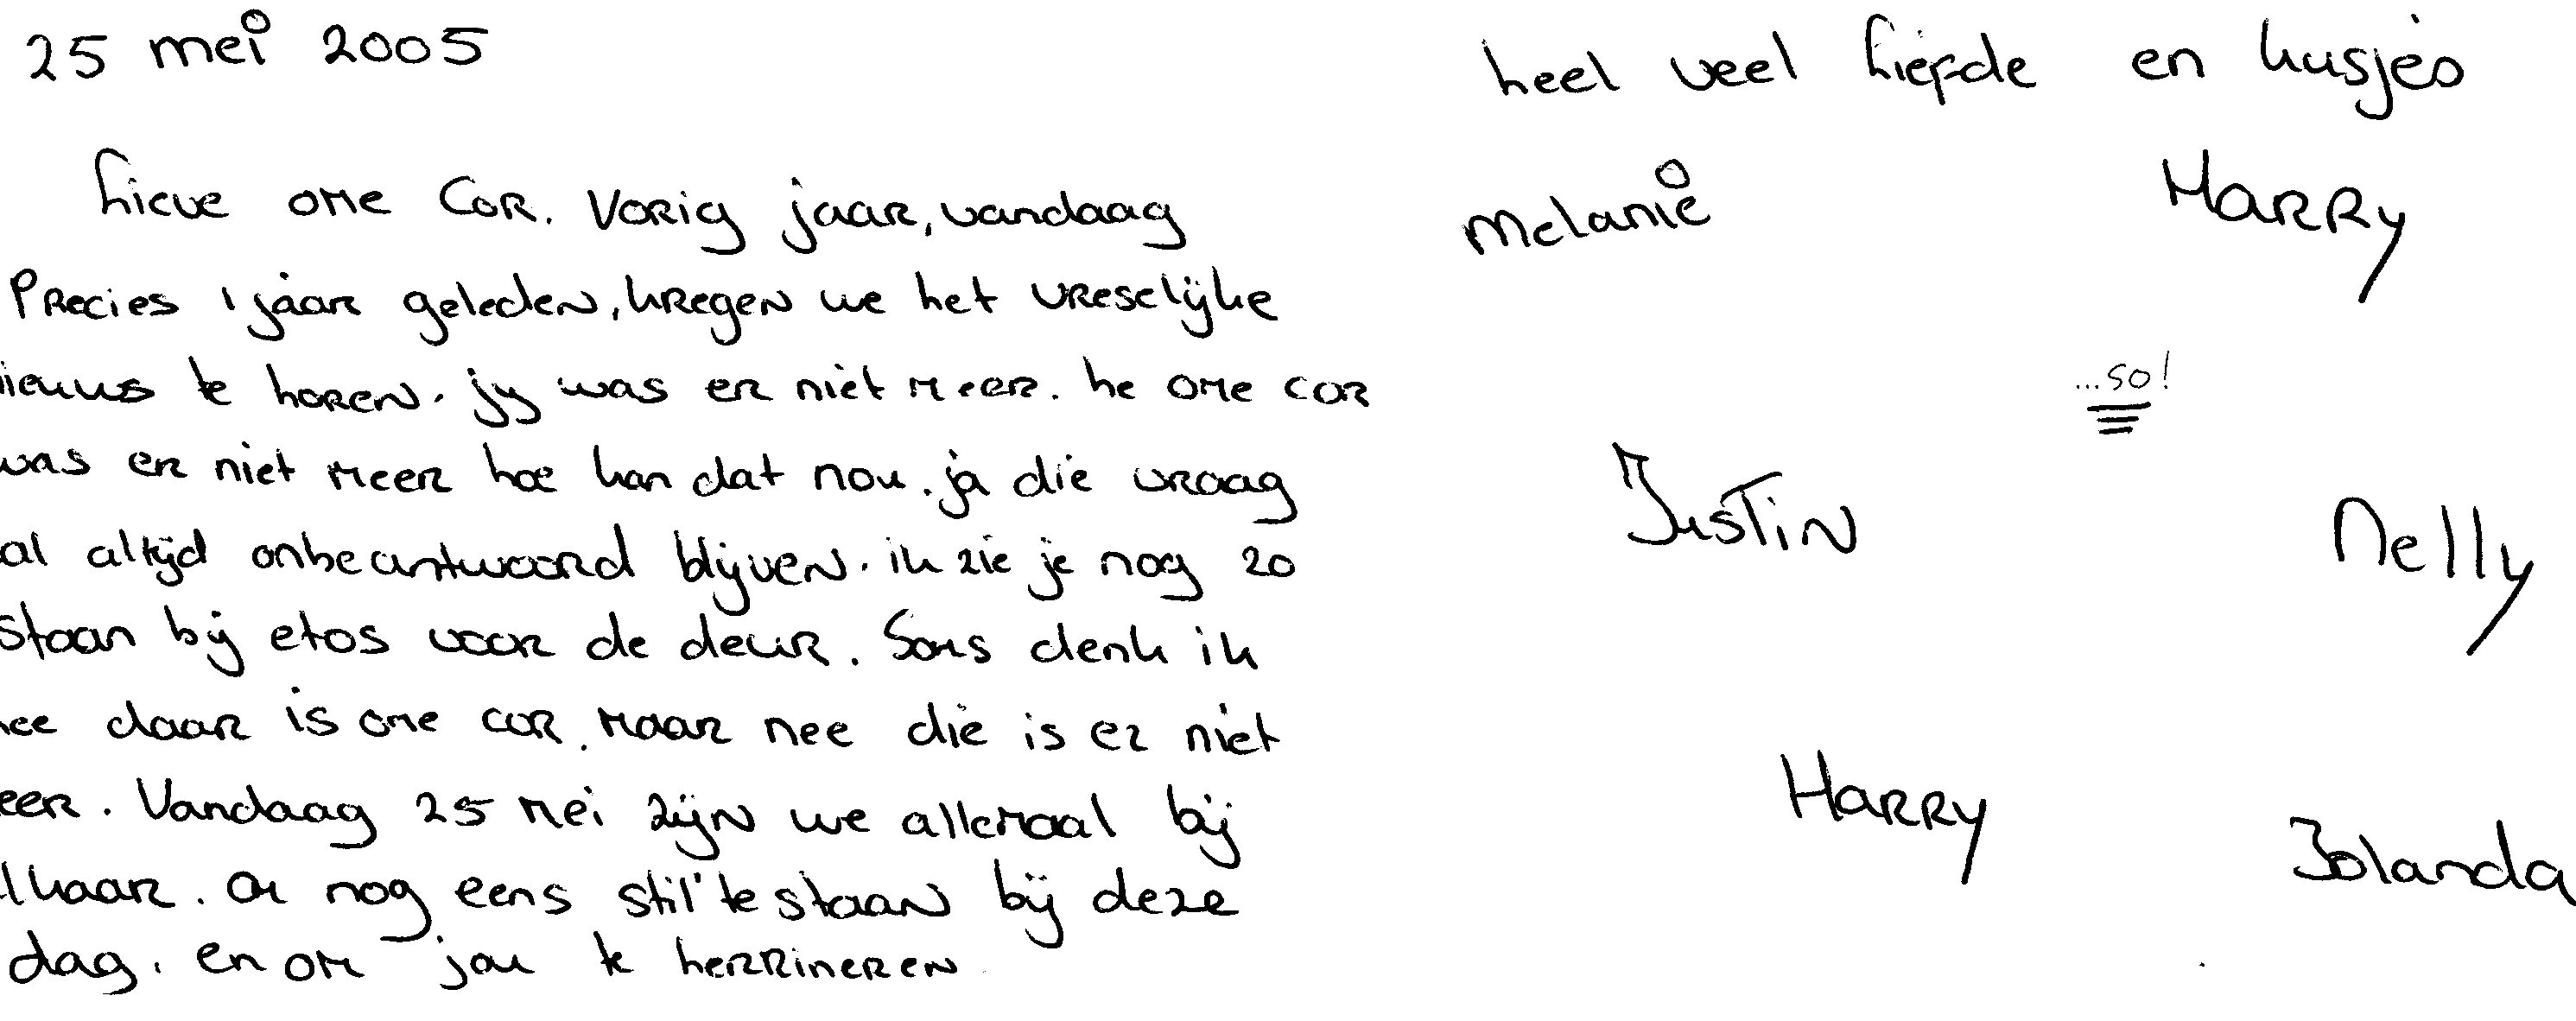 25 mei 2005
Lieve ome Cor. Vorig jaar, vandaag
Precies 1 jaar geleden, kregen we het vreselijke
nieuws te horen. jy was er niet meer. he ome cor
was er niet meer hoe kan dat nou. ja die vraag
al altijd onbeantwoord blijven. ik zie je nog zo
staan bij etos voor de deur. Soms denk ik
hee daar is ome cor. maar nee die is er niet
eer. Vandaag 25 mei zijn we allemaal bij
lkaar. Om nog eens stil te staan bij deze
dag. en om jou te herrineren
heel veel liefde en kusjes
Melanie
HARRY
...so!
Justin
Nelly
HARRY
Jolanda